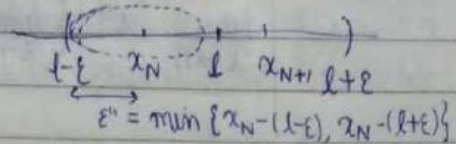 ( )
l-ε x_N l x_{N+1} l+ε
ε" = min {x_N-(l-ε), x_N-(l+ε)}